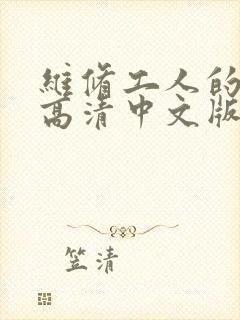 維修工人的
高清中文版
笠清